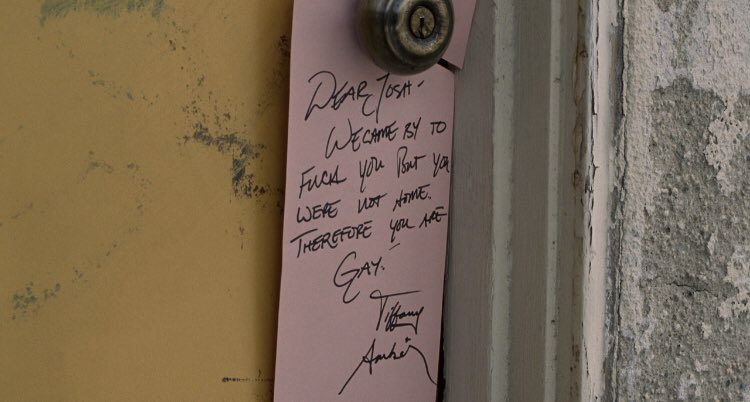 DEAR JOSH-
WE CAME BY TO
FUCK YOU BUT YOU
WERE NOT HOME.
THEREFORE YOU ARE
GAY.
Tiffany
Amber